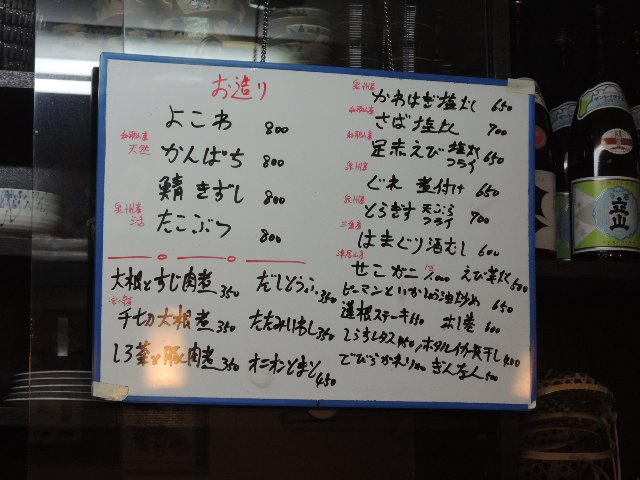 お造り
よこわ 800
和歌山産
天然 かんぱち 800
鯖きずし 800
泉州産
活 たこぶつ 800
大根とすじ肉煮 350 だしとうふ 350
千切大根煮 350 たたみいわし 350
しろ菜と豚肉煮 350 オニオントマト 450
泉州産 かわはぎ塩むし 650
和歌山産 さば塩焼 700
和歌山産 足赤えび 塩焼 フライ 650
泉州産 ぐれ 煮付け 650
泉州産 とらぎす 天ぷら フライ 700
三重産 はまぐり酒むし 600
津居山産 せこガニ えび芋煮 650
ピーマンといかしょう油炒め 650
蓮根ステーキ 650 水し巻 600
しらすレタス 450 ホタルイカ一夜干し 400
でびらかれい ぎんなん 500
立山